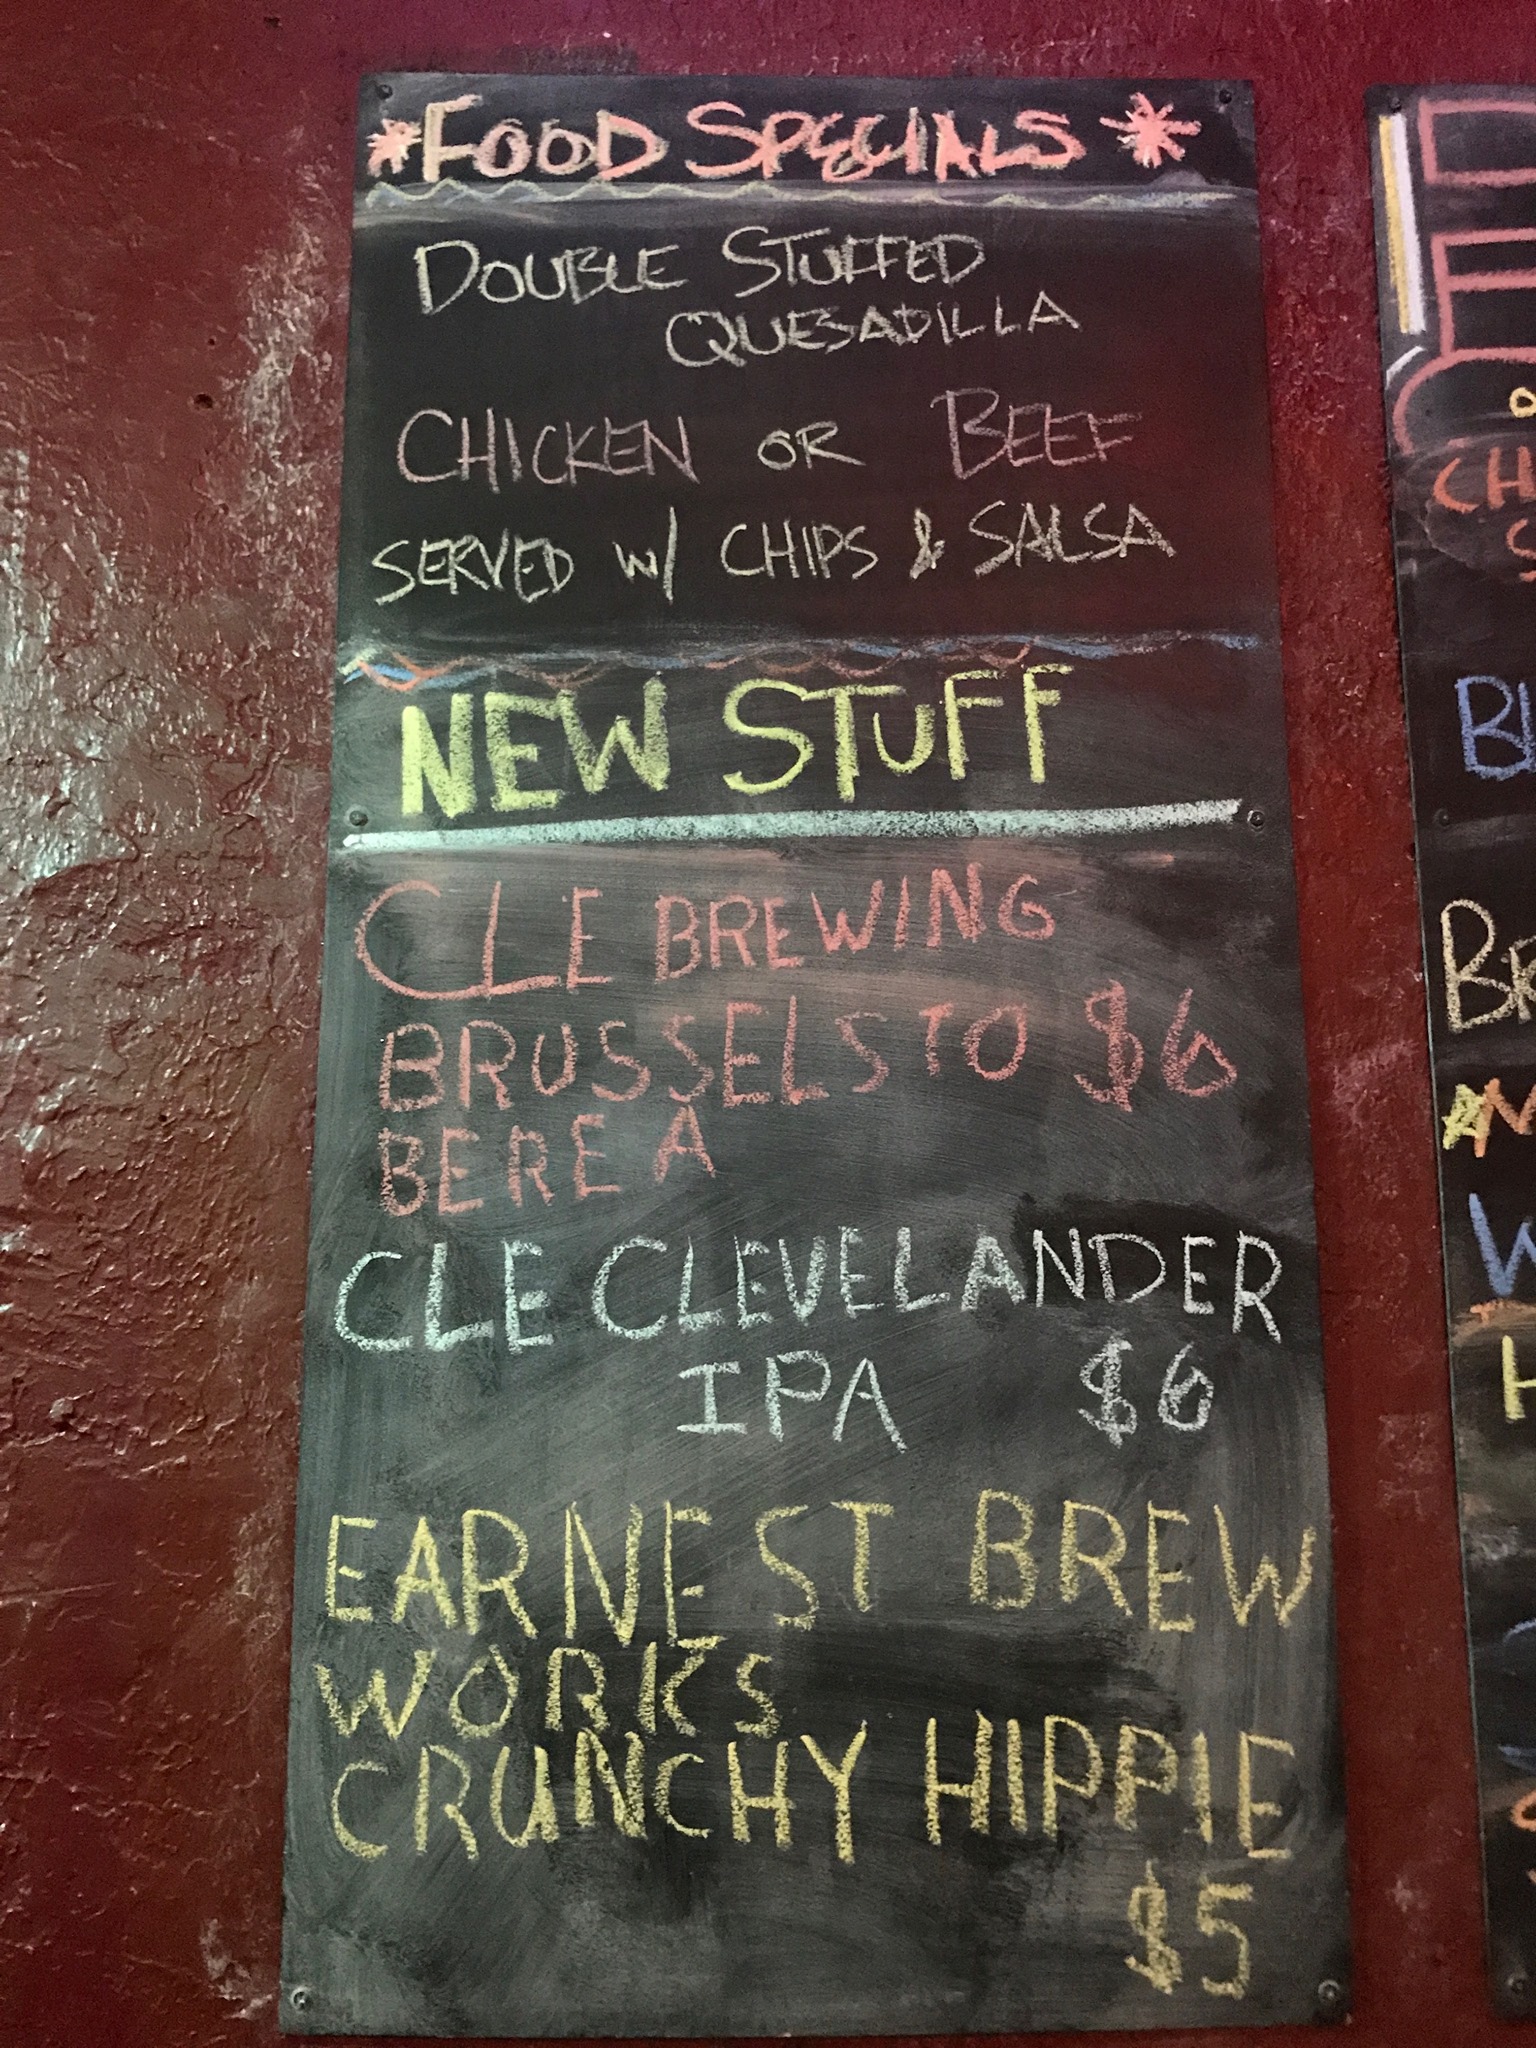 *FOOD SPECIALS*
DOUBLE STUFFED
QUESADILLA
CHICKEN OR BEEF
SERVED W/ CHIPS & SALSA
NEW STUFF
CLE BREWING
BRUSSELS TO $6
BEREA
CLE CLEVELANDER
IPA $6
EARNEST BREW
WORKS
CRUNCHY HIPPIE
$5